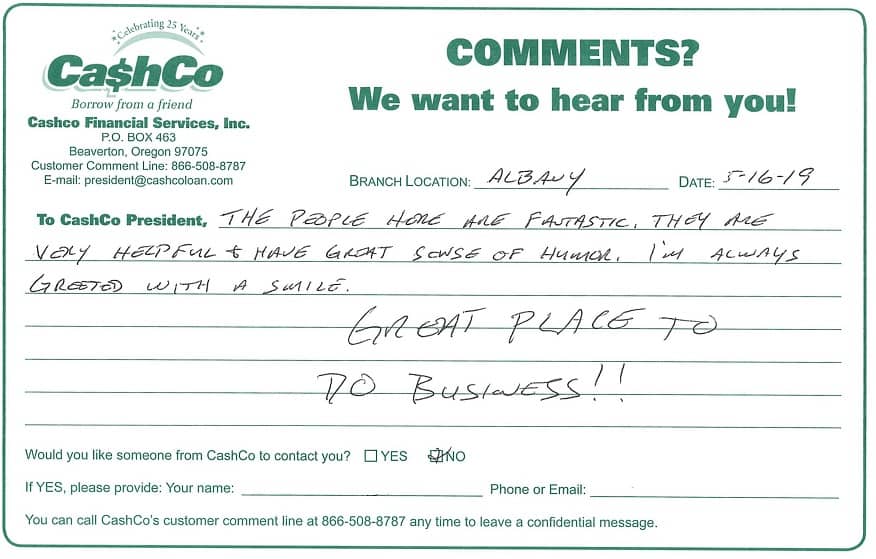 Celebrating 25 Years
Ca$hCo
Borrow from a friend
Cashco Financial Services, Inc.
P.O. BOX 463
Beaverton, Oregon 97075
Customer Comment Line: 866-508-8787
E-mail: president@cashcoloan.com
COMMENTS?
We want to hear from you!
BRANCH LOCATION: ALBANY DATE: 5-16-19
To CashCo President, THE PEOPLE HERE ARE FANTASTIC. THEY ARE
VERY HELPFUL & HAVE GREAT SENSE OF HUMOR. I'M ALWAYS
GREETED WITH A SMILE.
GREAT PLACE TO
DO BUSINESS!!
Would you like someone from CashCo to contact you? YES NO
If YES, please provide: Your name: Phone or Email:
You can call CashCo's customer comment line at 866-508-8787 any time to leave a confidential message.